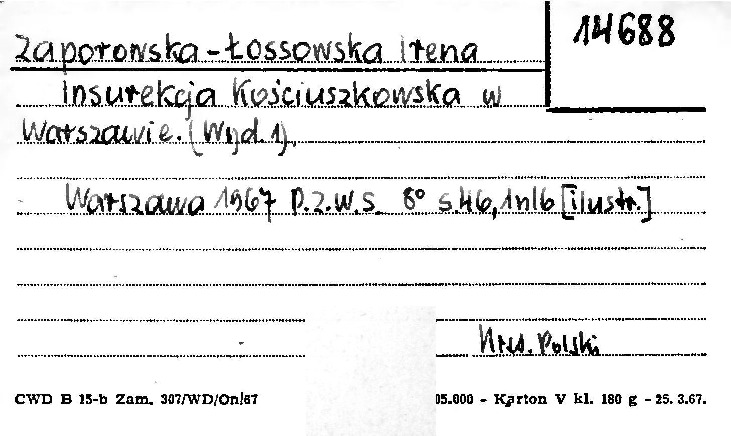 14688
Zaporowska-Łossowska Irena
Insurekcja Kościuszkowska w
Warszawie. (Wyd. 1).
Warszawa 1967 P.Z.W.S. 8° s.46, 1nlb [ilustr.]
Polski
CWD B 15-b Zam. 307/WD/On/67
05.000 - Karton V kl. 180 g - 25. 3.67.